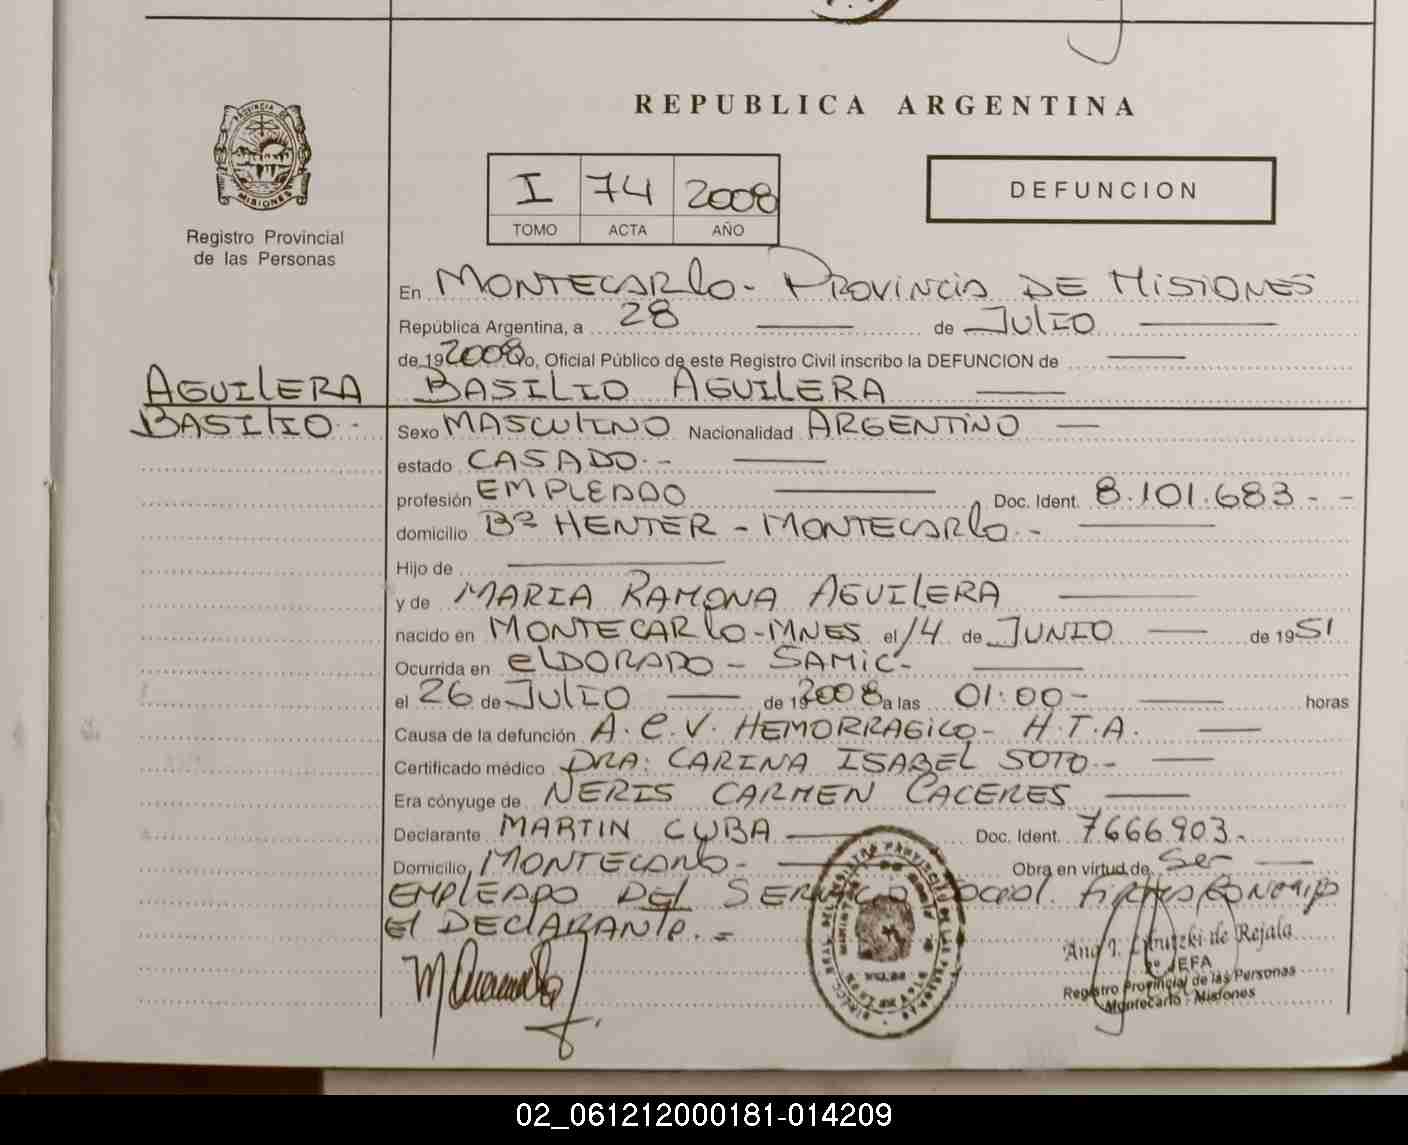 REPUBLICA ARGENTINA
PROVINCIA DE
MISIONES
Registro Provincial
de las Personas
I 74 2008
TOMO ACTA AÑO
DEFUNCION
En MONTECARLO- PROVINCIA DE MISIONES
República Argentina, a 28 de JULIO
de 192008 o, Oficial Público de este Registro Civil inscribo la DEFUNCION de
AGUILERA BASILIO AGUILERA
BASILIO- Sexo MASCULINO Nacionalidad ARGENTINO
estado CASADO.-
profesión EMPLEADO Doc. Ident. 8.101.683.--
domicilio Bº HENTER - MONTECARLO.-
Hijo de
y de MARIA RAMONA AGUILERA
nacido en MONTECARLO-MNES el 14 de JUNIO de 1951
Ocurrida en ELDORADO - SAMIC-
el 26 de JULIO de 192008 a las 01:00- horas
Causa de la defunción A.C.V. HEMORRAGICO- H.T.A.
Certificado médico DRA: CARINA ISABEL SOTO.-
Era cónyuge de NERIS CARMEN CACERES
Declarante MARTIN CUBA Doc. Ident. 7666903.
Domicilio MONTECARLO- Obra en virtud de Ser
EMPLEADO DEL SERVICIO SOCIAL. FIRMA CONMIGO
El DECLARANTE.=
JEFA
Registro Provincial de las Personas
Montecarlo - Misiones
02_061212000181-014209